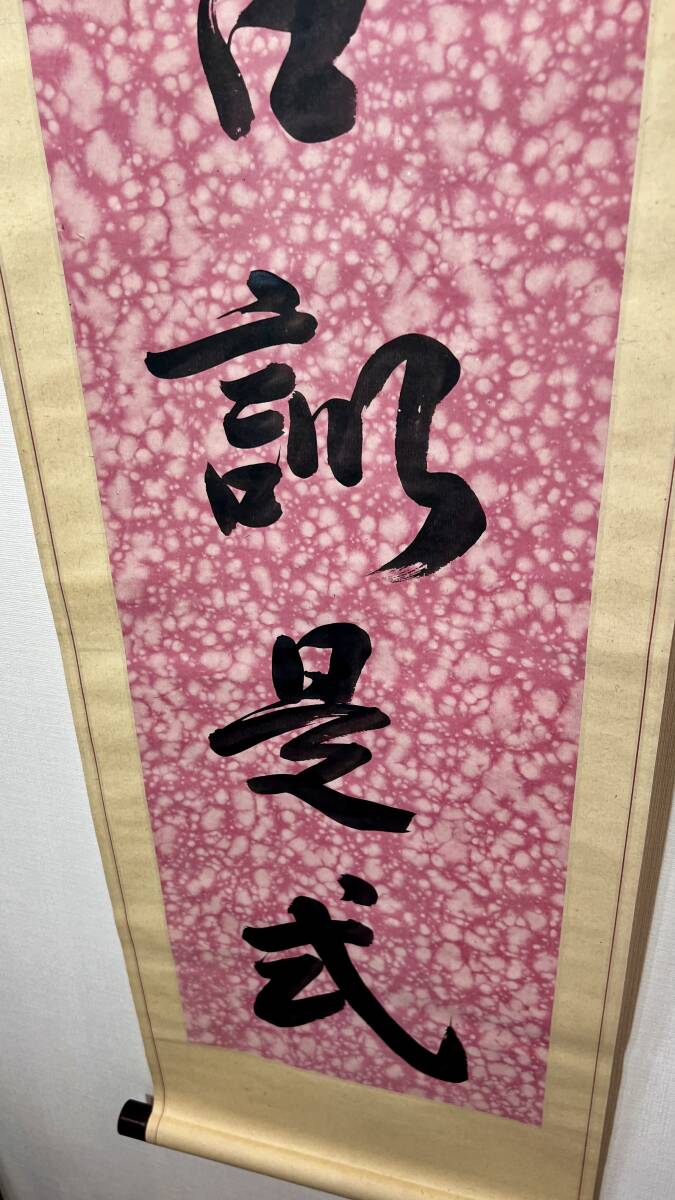 訓是式